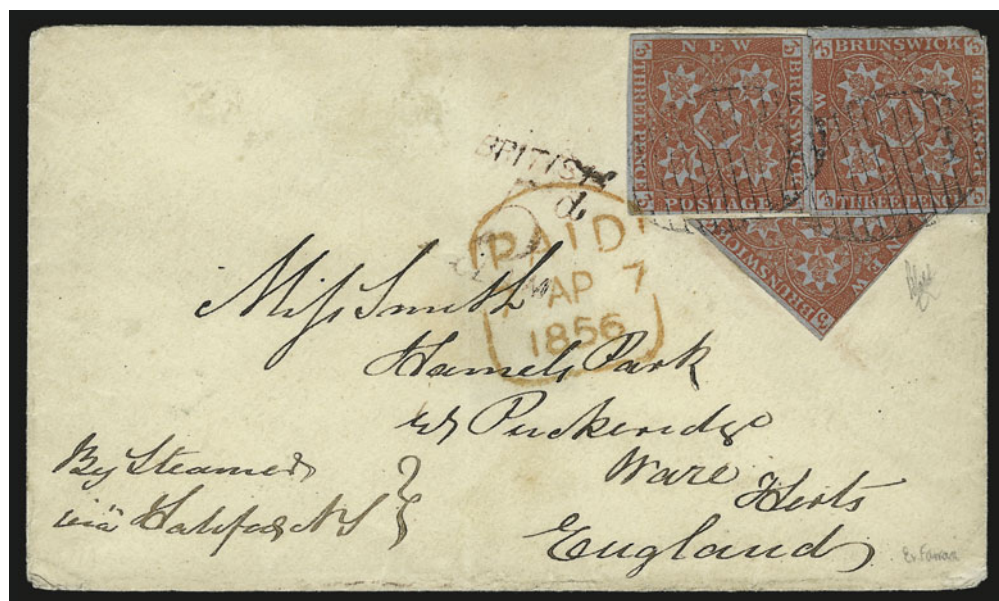 NEW
BRUNSWICK
THREE PENCE
POSTAGE
3
BRUNSWICK
NEW
POSTAGE
THREE PENCE
3
BRUNSWICK
NEW
3
BRITISH
d
PAID
AP 7
1856
Miss Smith
Hamels Park
Puckeridge
Ware
Herts
England
By Steamer
via Halifax NS
Ex Farrar